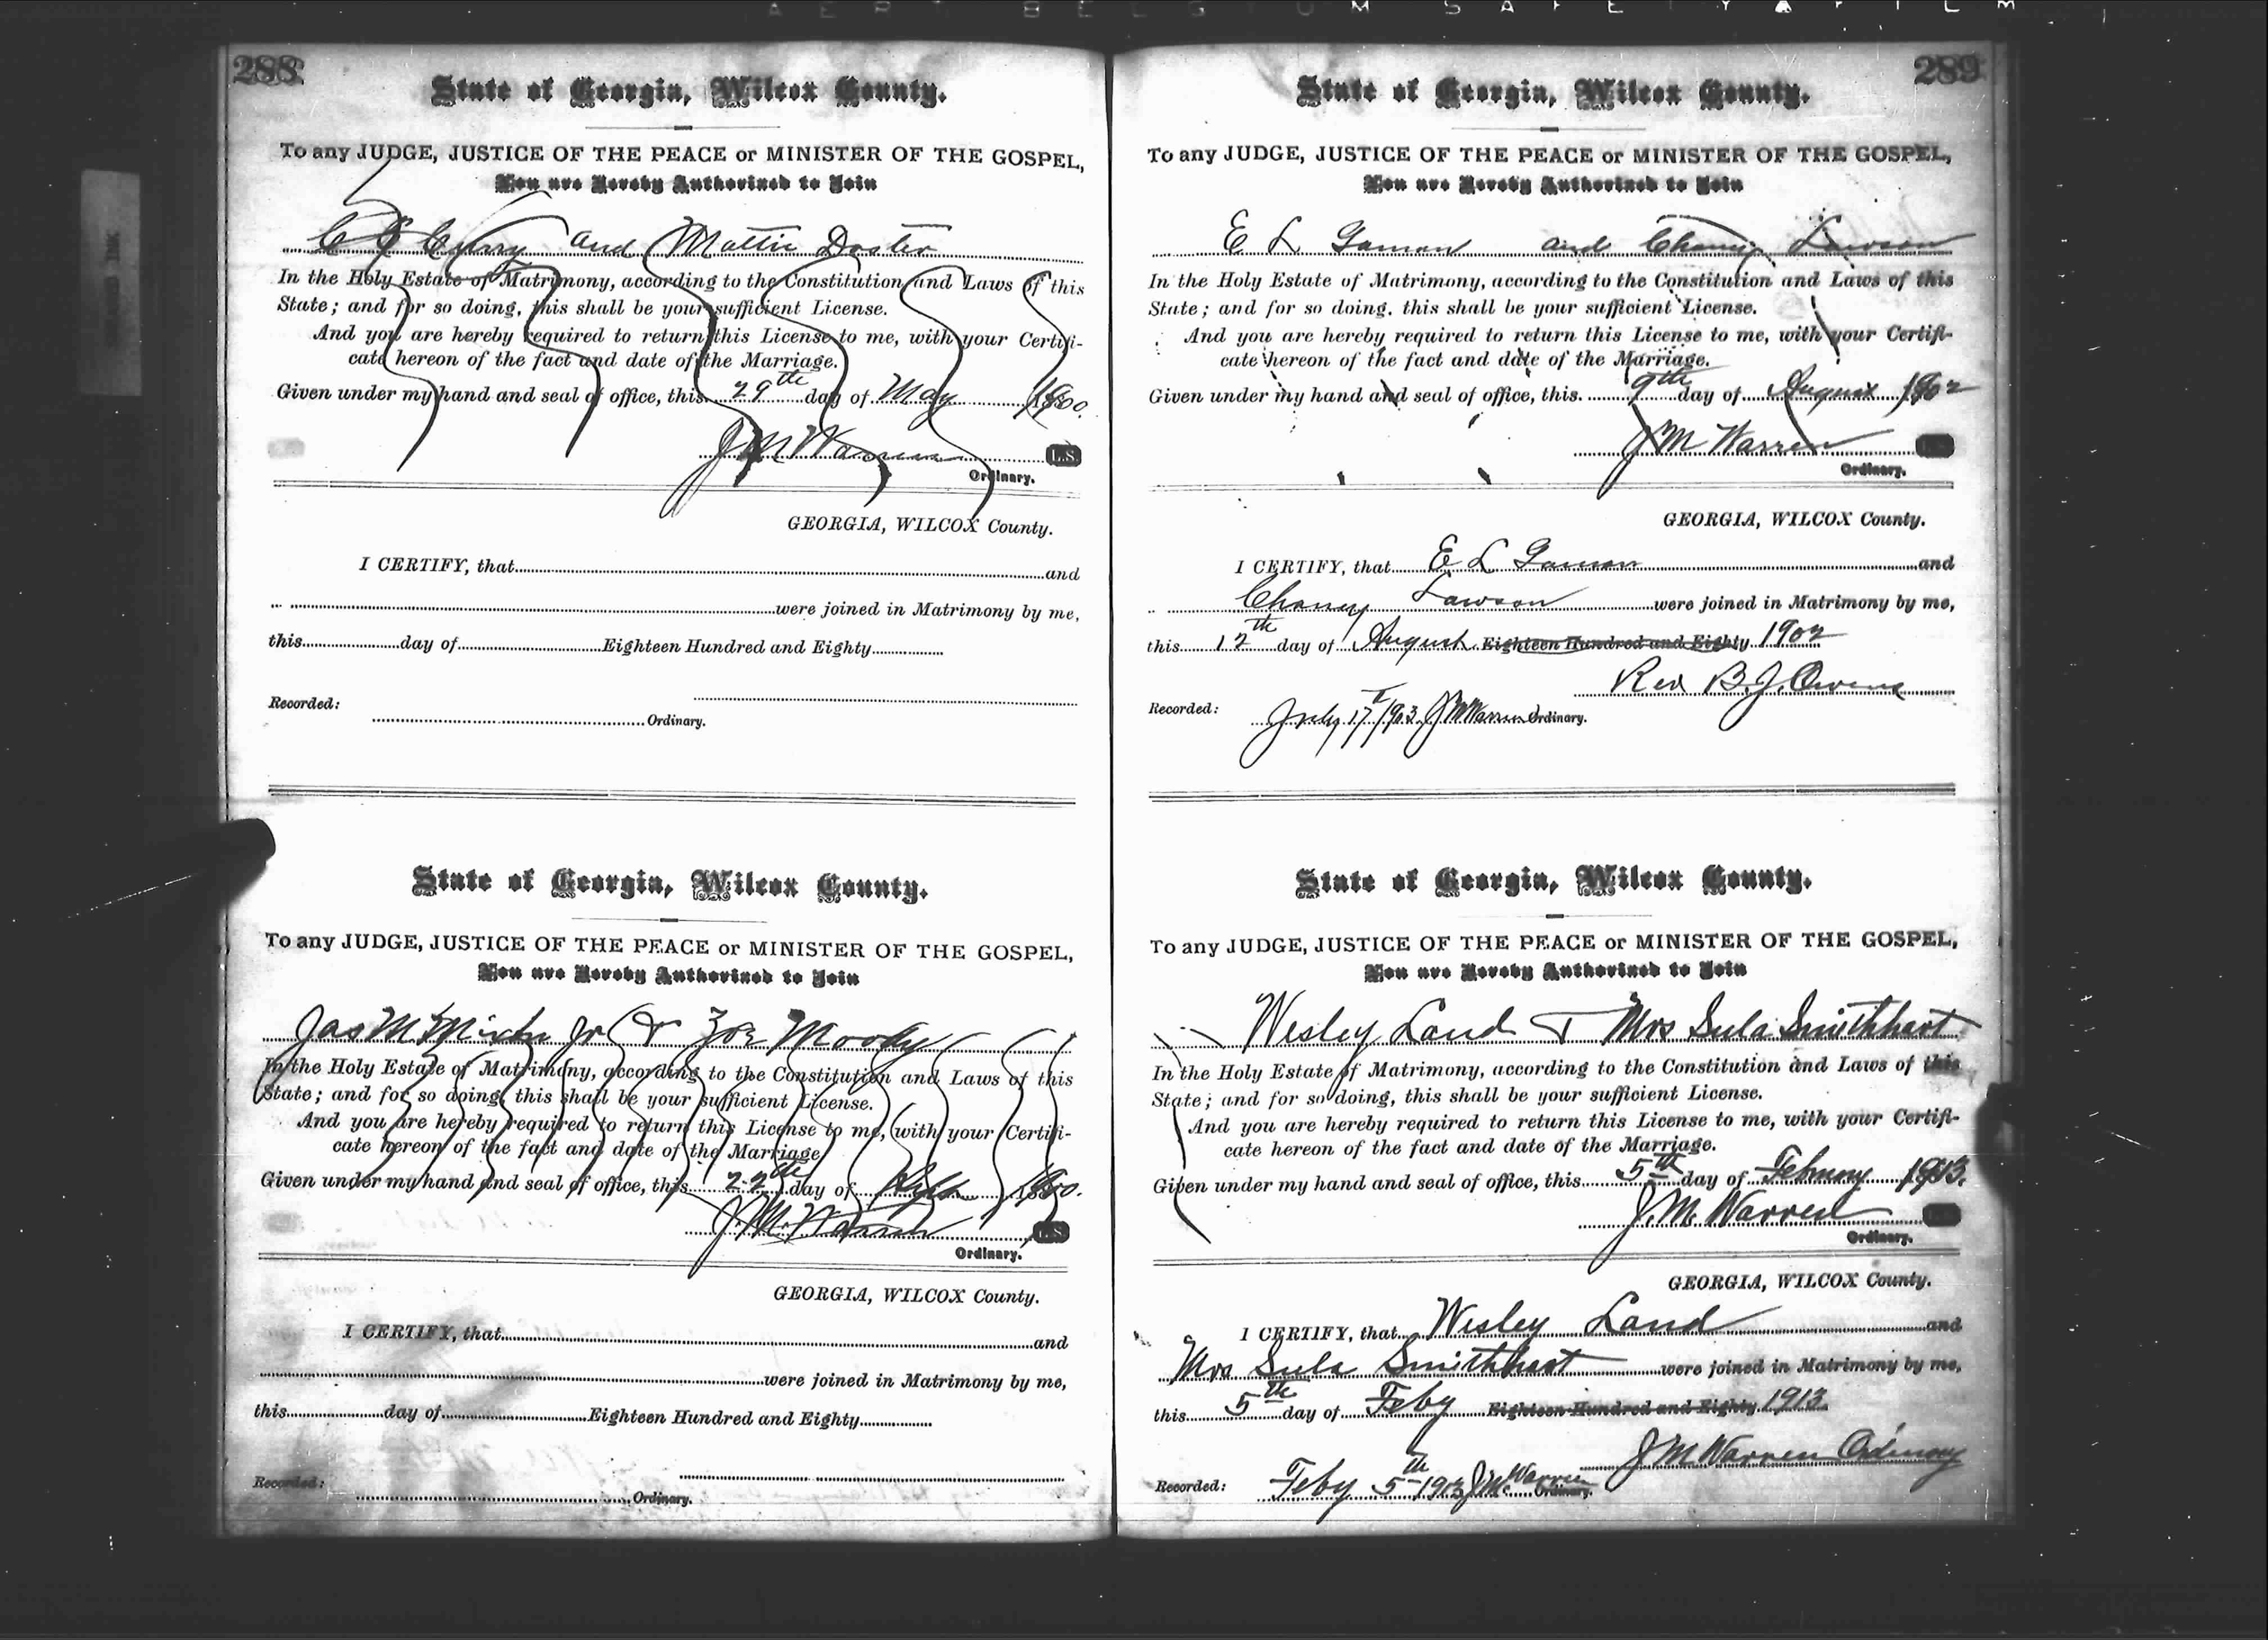 288
State of Georgia, Wilcox County.
To any JUDGE, JUSTICE OF THE PEACE or MINISTER OF THE GOSPEL,
You are Hereby Authorized to Join
and Mattie Doster
In the Holy Estate of Matrimony, according to the Constitution and Laws of this
State; and for so doing, this shall be your sufficient License.
And you are hereby required to return this License to me, with your Certifi-
cate hereon of the fact and date of the Marriage.
Given under my hand and seal of office, this 29th day of May
J M Warren L.S.
Ordinary.
GEORGIA, WILCOX County.
I CERTIFY, that and
were joined in Matrimony by me,
this day of Eighteen Hundred and Eighty
Recorded:
Ordinary.
State of Georgia, Wilcox County.
To any JUDGE, JUSTICE OF THE PEACE or MINISTER OF THE GOSPEL,
You are Hereby Authorized to Join
Jas M Jr & Zoe Moody
In the Holy Estate of Matrimony, according to the Constitution and Laws of this
State; and for so doing, this shall be your sufficient License.
And you are hereby required to return this License to me, with your Certifi-
cate hereon of the fact and date of the Marriage
Given under my hand and seal of office, this 22th day of
J. M. Warren L.S.
Ordinary.
GEORGIA, WILCOX County.
I CERTIFY, that and
were joined in Matrimony by me,
this day of Eighteen Hundred and Eighty
Recorded:
Ordinary.
289
State of Georgia, Wilcox County.
To any JUDGE, JUSTICE OF THE PEACE or MINISTER OF THE GOSPEL,
You are Hereby Authorized to Join
E L and Chaney Lawson
In the Holy Estate of Matrimony, according to the Constitution and Laws of this
State; and for so doing, this shall be your sufficient License.
And you are hereby required to return this License to me, with your Certifi-
cate hereon of the fact and date of the Marriage.
Given under my hand and seal of office, this 9th day of August 1902
J M Warren
Ordinary.
GEORGIA, WILCOX County.
I CERTIFY, that E L and
Chaney Lawson were joined in Matrimony by me,
this 12th day of August Eighteen Hundred and Eighty 1902
Rev B. J. Owens
Recorded: July 17 1903 J M Warren Ordinary.
State of Georgia, Wilcox County.
To any JUDGE, JUSTICE OF THE PEACE or MINISTER OF THE GOSPEL,
You are Hereby Authorized to Join
Wesley Land & Mrs Sula Smithhart
In the Holy Estate of Matrimony, according to the Constitution and Laws of this
State; and for so doing, this shall be your sufficient License.
And you are hereby required to return this License to me, with your Certifi-
cate hereon of the fact and date of the Marriage.
Given under my hand and seal of office, this 5th day of Febuary 1913.
J. M. Warren
Ordinary.
GEORGIA, WILCOX County.
I CERTIFY, that Wesley Land and
Mrs Sula Smithhart were joined in Matrimony by me,
this 5th day of Feby Eighteen Hundred and Eighty 1913.
J M Warren Ordinary
Recorded: Feby 5th 1913 J M Warren Ordinary.